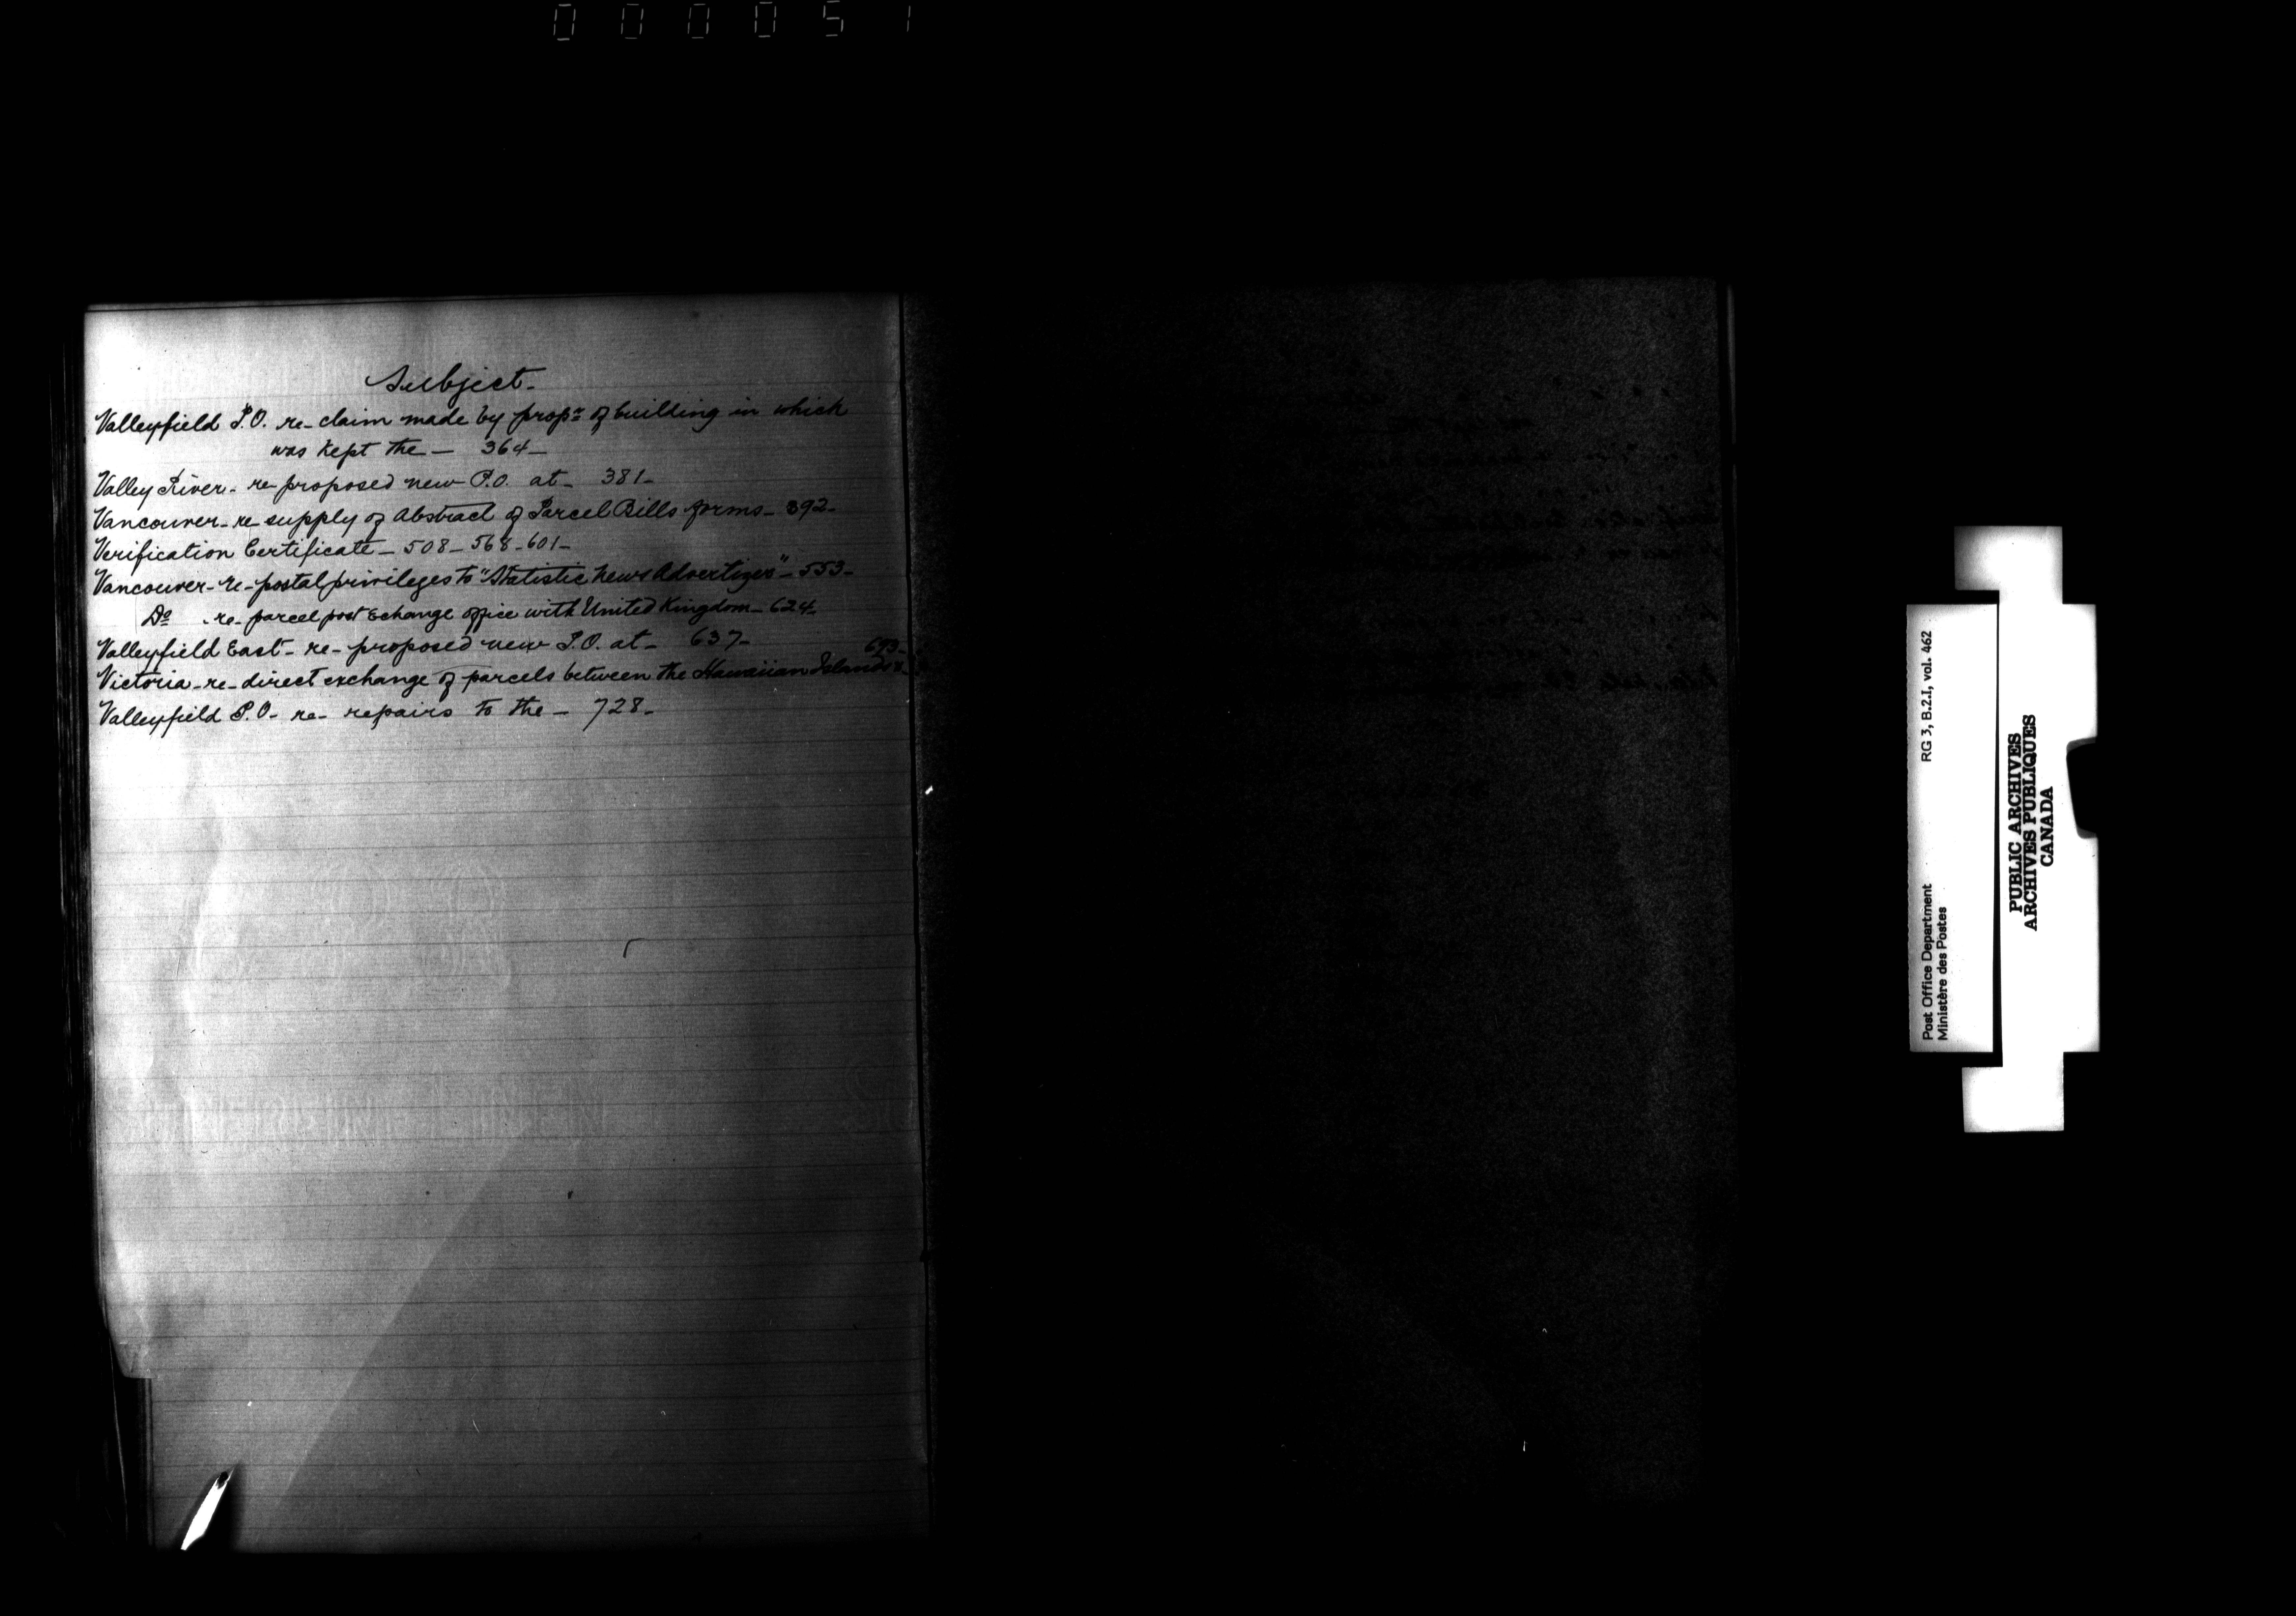 000051
Subject-
Valleyfield P.O. re- claim made by propr of building in which
was kept the - 364-
Valley River- re- proposed new P.O. at- 381-
Vancouver- re supply of Abstract of Parcel Bills forms- 392-
Verification Certificate- 508- 568-601-
Vancouver- re- postal privileges to "Statistic News Advertizer"- 553-
Do - re- parcel post Echange office with United Kingdom- 624-
Valleyfield East- re- proposed new P.O. at- 637-
693-
Victoria- re- direct exchange of parcels between the Hawaiian Islands &
Valleyfield P.O- re- repairs to the- 728-
RG 3, B.2.I, vol. 462
Post Office Department
Ministère des Postes
PUBLIC ARCHIVES
ARCHIVES PUBLIQUES
CANADA